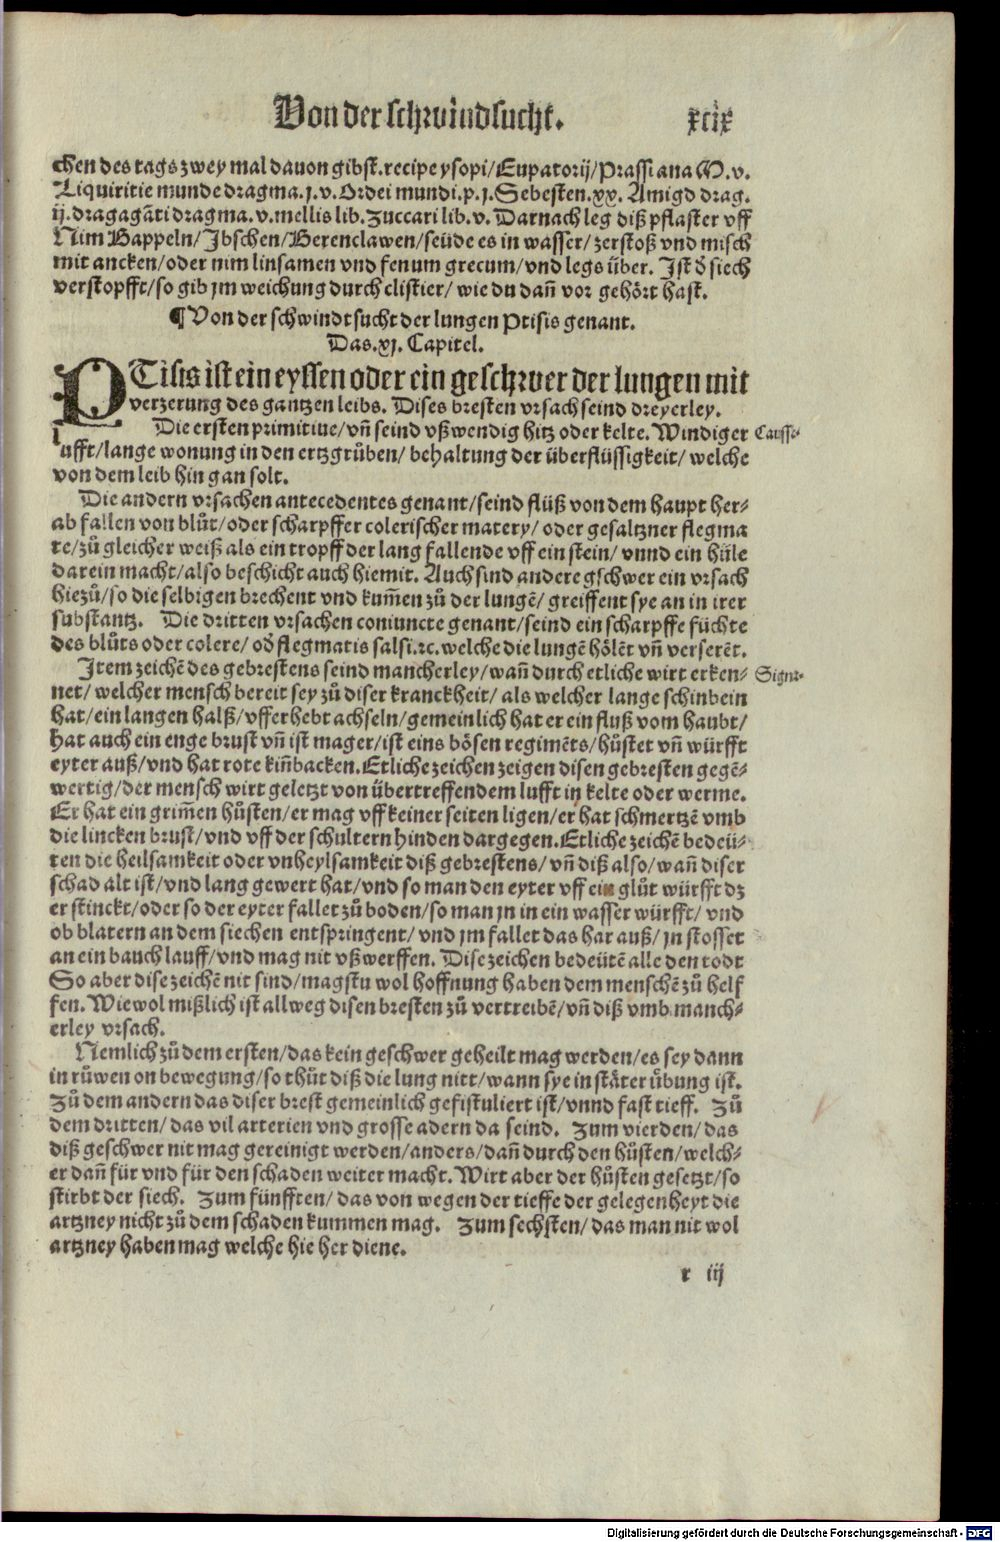 Von der schwindsucht. xcix
chen des tags zwey mal dauon gibst. recipe ysopi/Eupatorij/Prassi ana M. v.
Liquiritie munde dragma. j. v. Ordei mundi. p. j. Sebesten. xx. Amigd drag.
ij. dragagãti dragma. v. mellis lib. Zuccari lib. v. Darnach leg diß pflaster vff
Nim Bappeln/Jbschen/Berenclawen/seüde es in wasser/zerstoß vnd misch
mit ancken/oder nim linsamen vnd fenum grecum/vnd legs über. Jst d̃ siech
verstopfft/so gib jm weichung durch clistier/wie du dañ vor gehört hast.
¶ Von der schwindtsucht der lungen Ptisis genant.
Das. xj. Capitel.
PTisis ist ein eyssen oder ein geschwer der lungen mit
verzerung des gantzen leibs. Dises bresten vrsach seind dreyerley.
Die ersten primitiue/vñ seind vßwendig hitz oder kelte. Windiger Causse
lufft/lange wonung in den ertzgrüben/behaltung der überflüssigkeit/welche
von dem leib hin gan solt.
Die andern vrsachen antecedentes genant/seind flüß von dem haupt her-
ab fallen von blůt/oder scharpffer colerischer matery/oder gesaltzner flegma
te/zů gleicher weiß als ein tropff der lang fallende vff ein stein/vnnd ein hüle
darein macht/also beschicht auch hiemit. Auch sind andere gschwer ein vrsach
hiezů/so die selbigen brechent vnd kum̃en zů der lungẽ/greiffent sye an in irer
substantz. Die dritten vrsachen coniuncte genant/seind ein scharpffe füchte
des blůts oder colere/od̃ flegmatis salsi. ꝛc. welche die lungẽ hölẽt vñ verserẽt.
Jtem zeichẽ des gebrestens seind mancherley/wañ durch etliche wirt erken- Signa.
net/welcher mensch bereit sey zů diser kranckheit/als welcher lange schinbein
hat/ein langen halß/vfferhebt achseln/gemeinlich hat er ein fluß vom haubt/
hat auch ein enge brust vñ ist mager/ist eins bösen regimẽts/hůstet vñ würfft
eyter auß/vnd hat rote kiñbacken. Etliche zeichen zeigen disen gebresten gegẽ-
wertig/der mensch wirt geletzt von übertreffendem lufft in kelte oder werme.
Er hat ein grim̃en hůsten/er mag vff keiner seiten ligen/er hat schmertzẽ vmb
die lincken brust/vnd vff der schultern hinden dargegen. Etliche zeichẽ bedeü-
ten die heilsamkeit oder vnheylsamkeit diß gebrestens/vñ diß also/wañ diser
schad alt ist/vnd lang gewert hat/vnd so man den eyter vff ein glůt würfft dz
er stinckt/oder so der eyter fallet zů boden/so man jn in ein wasser würfft/vnd
ob blatern an dem siechen entspringent/vnd jm fallet das har auß/jn stosset
an ein bauch lauff/vnd mag nit vßwerffen. Dise zeichen bedeütẽ alle den todt
So aber dise zeichẽ nit sind/magstu wol hoffnung haben dem menschẽ zů helf
fen. Wiewol mißlich ist allweg disen bresten zů vertreibẽ/vñ diß vmb manch-
erley vrsach.
Nemlich zů dem ersten/das kein geschwer geheilt mag werden/es sey dann
in růwen on bewegung/so thůt diß die lung nitt/wann sye in stäter übung ist.
Zů dem andern das diser brest gemeinlich gefistuliert ist/vnnd fast tieff. Zů
dem dritten/das vil arterien vnd grosse adern da seind. Zum vierden/das
diß geschwer nit mag gereinigt werden/anders/dañ durch den hůsten/welch-
er dañ für vnd für den schaden weiter macht. Wirt aber der hůsten gesetzt/so
stirbt der siech. Zum fünfften/das von wegen der tieffe der gelegenheyt die
artzney nicht zů dem schaden kummen mag. Zum sechsten/das man nit wol
artzney haben mag welche hie her diene.
r iij
Digitalisierung gefördert durch die Deutsche Forschungsgemeinschaft - DFG